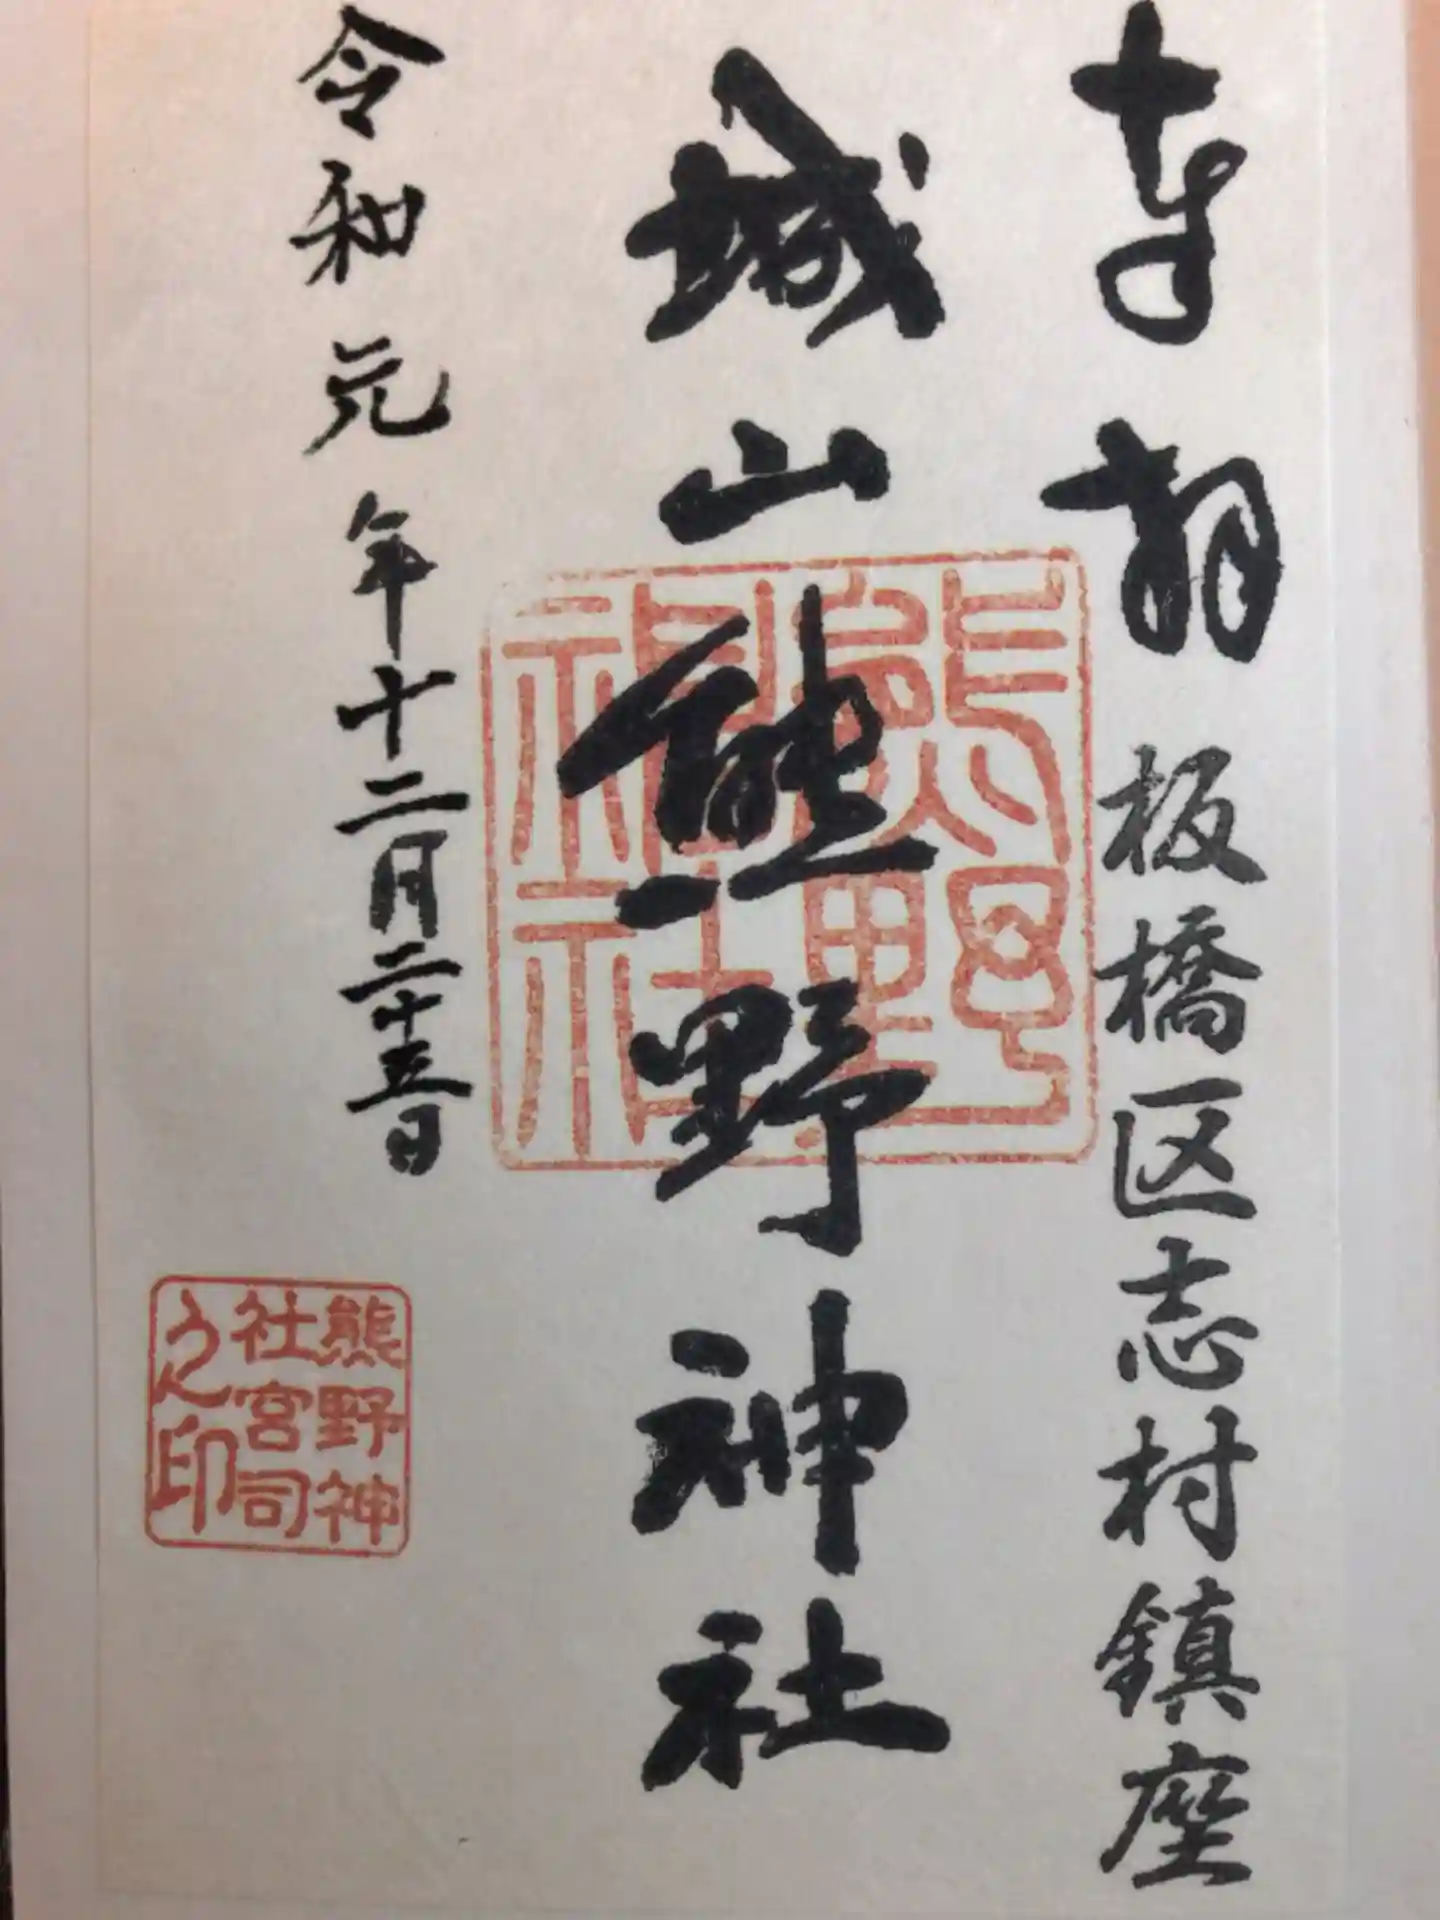 奉拝
板橋区志村鎮座
城山熊野神社
熊野
神社
令和元年十二月二十五日
熊野神
社宮司
之印